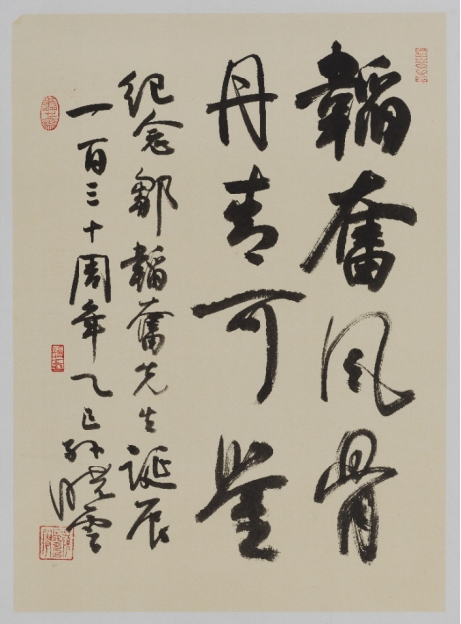 韬奋风骨
丹青可鉴
纪念邹韬奋先生诞辰
一百三十周年乙巳孙晓云